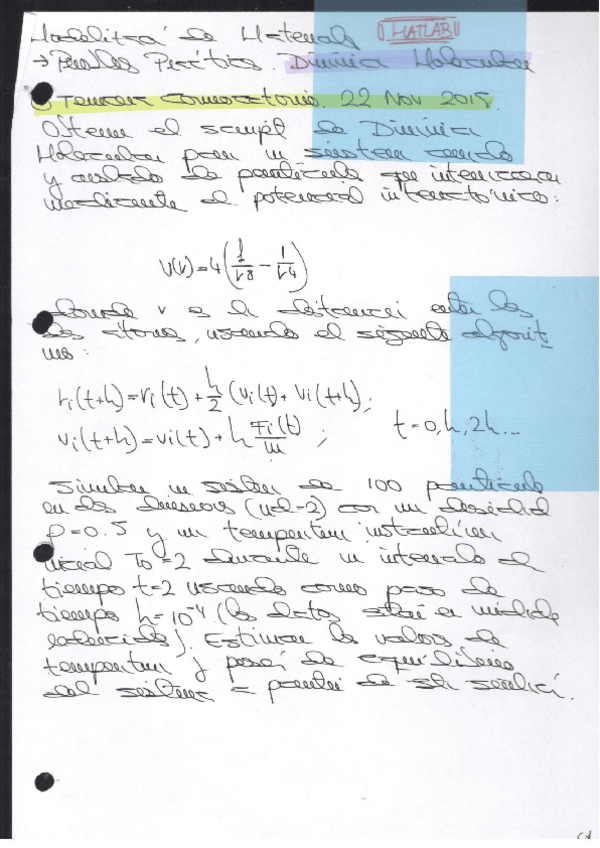 Modelización de Materiales MATLAB
→ Pruebas Prácticas. Dinámica Molecular
Tercera convocatoria. 22 Nov 2018.
Obtener el script de Dinámica
Molecular para un sistema cerrado
y aislado de partículas que interaccionan
mediante el potencial interatómico:
V(r)=4(1/r8 - 1/r4)
donde r es la distancia entre los
dos átomos, usando el siguiente algorit
mo:
ri(t+h)=ri(t)+h/2(vi(t)+vi(t+h);
vi(t+h)=vi(t)+h Fi(t)/m ; t=0,h,2h...
Simular un sistema de 100 partículas
en dos dimensiones (nd=2) con una densidad
ρ=0.5 y una temperatura instantánea
inicial To=2 durante un intervalo de
tiempo t=2 usando como paso de
tiempo h=10-4 (los datos están en unidades
reducidas). Estimar los valores de
temperatura y presión de equilibrio
del sistema a partir de